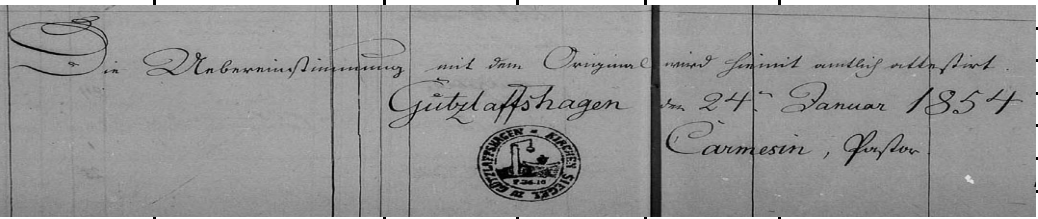 Die Uebereinstimmung mit dem Original wird hiemit amtlich attestirt.
Gützlaffshagen den 24ten Januar 1854
Carmesin, Pastor.
KIRCHEN SIEGEL ZU GÜTZLAFFSHAGEN